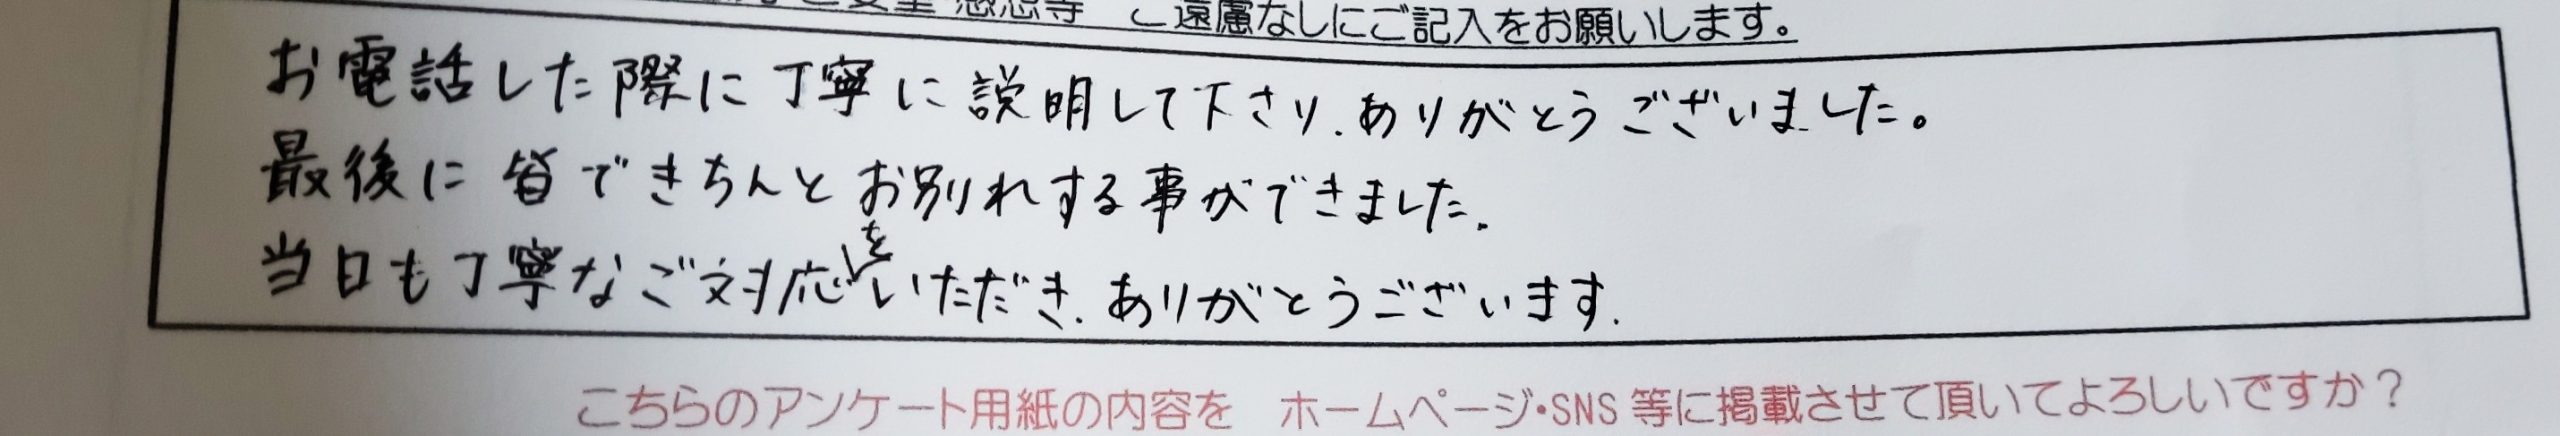 ご遠慮なしにご記入をお願いします。
お電話した際に丁寧に説明して下さり、ありがとうございました。
最後に皆できちんとお別れする事ができました。
当日も丁寧なご対応をいただき、ありがとうございます。
こちらのアンケート用紙の内容を ホームページ・SNS 等に掲載させて頂いてよろしいですか？